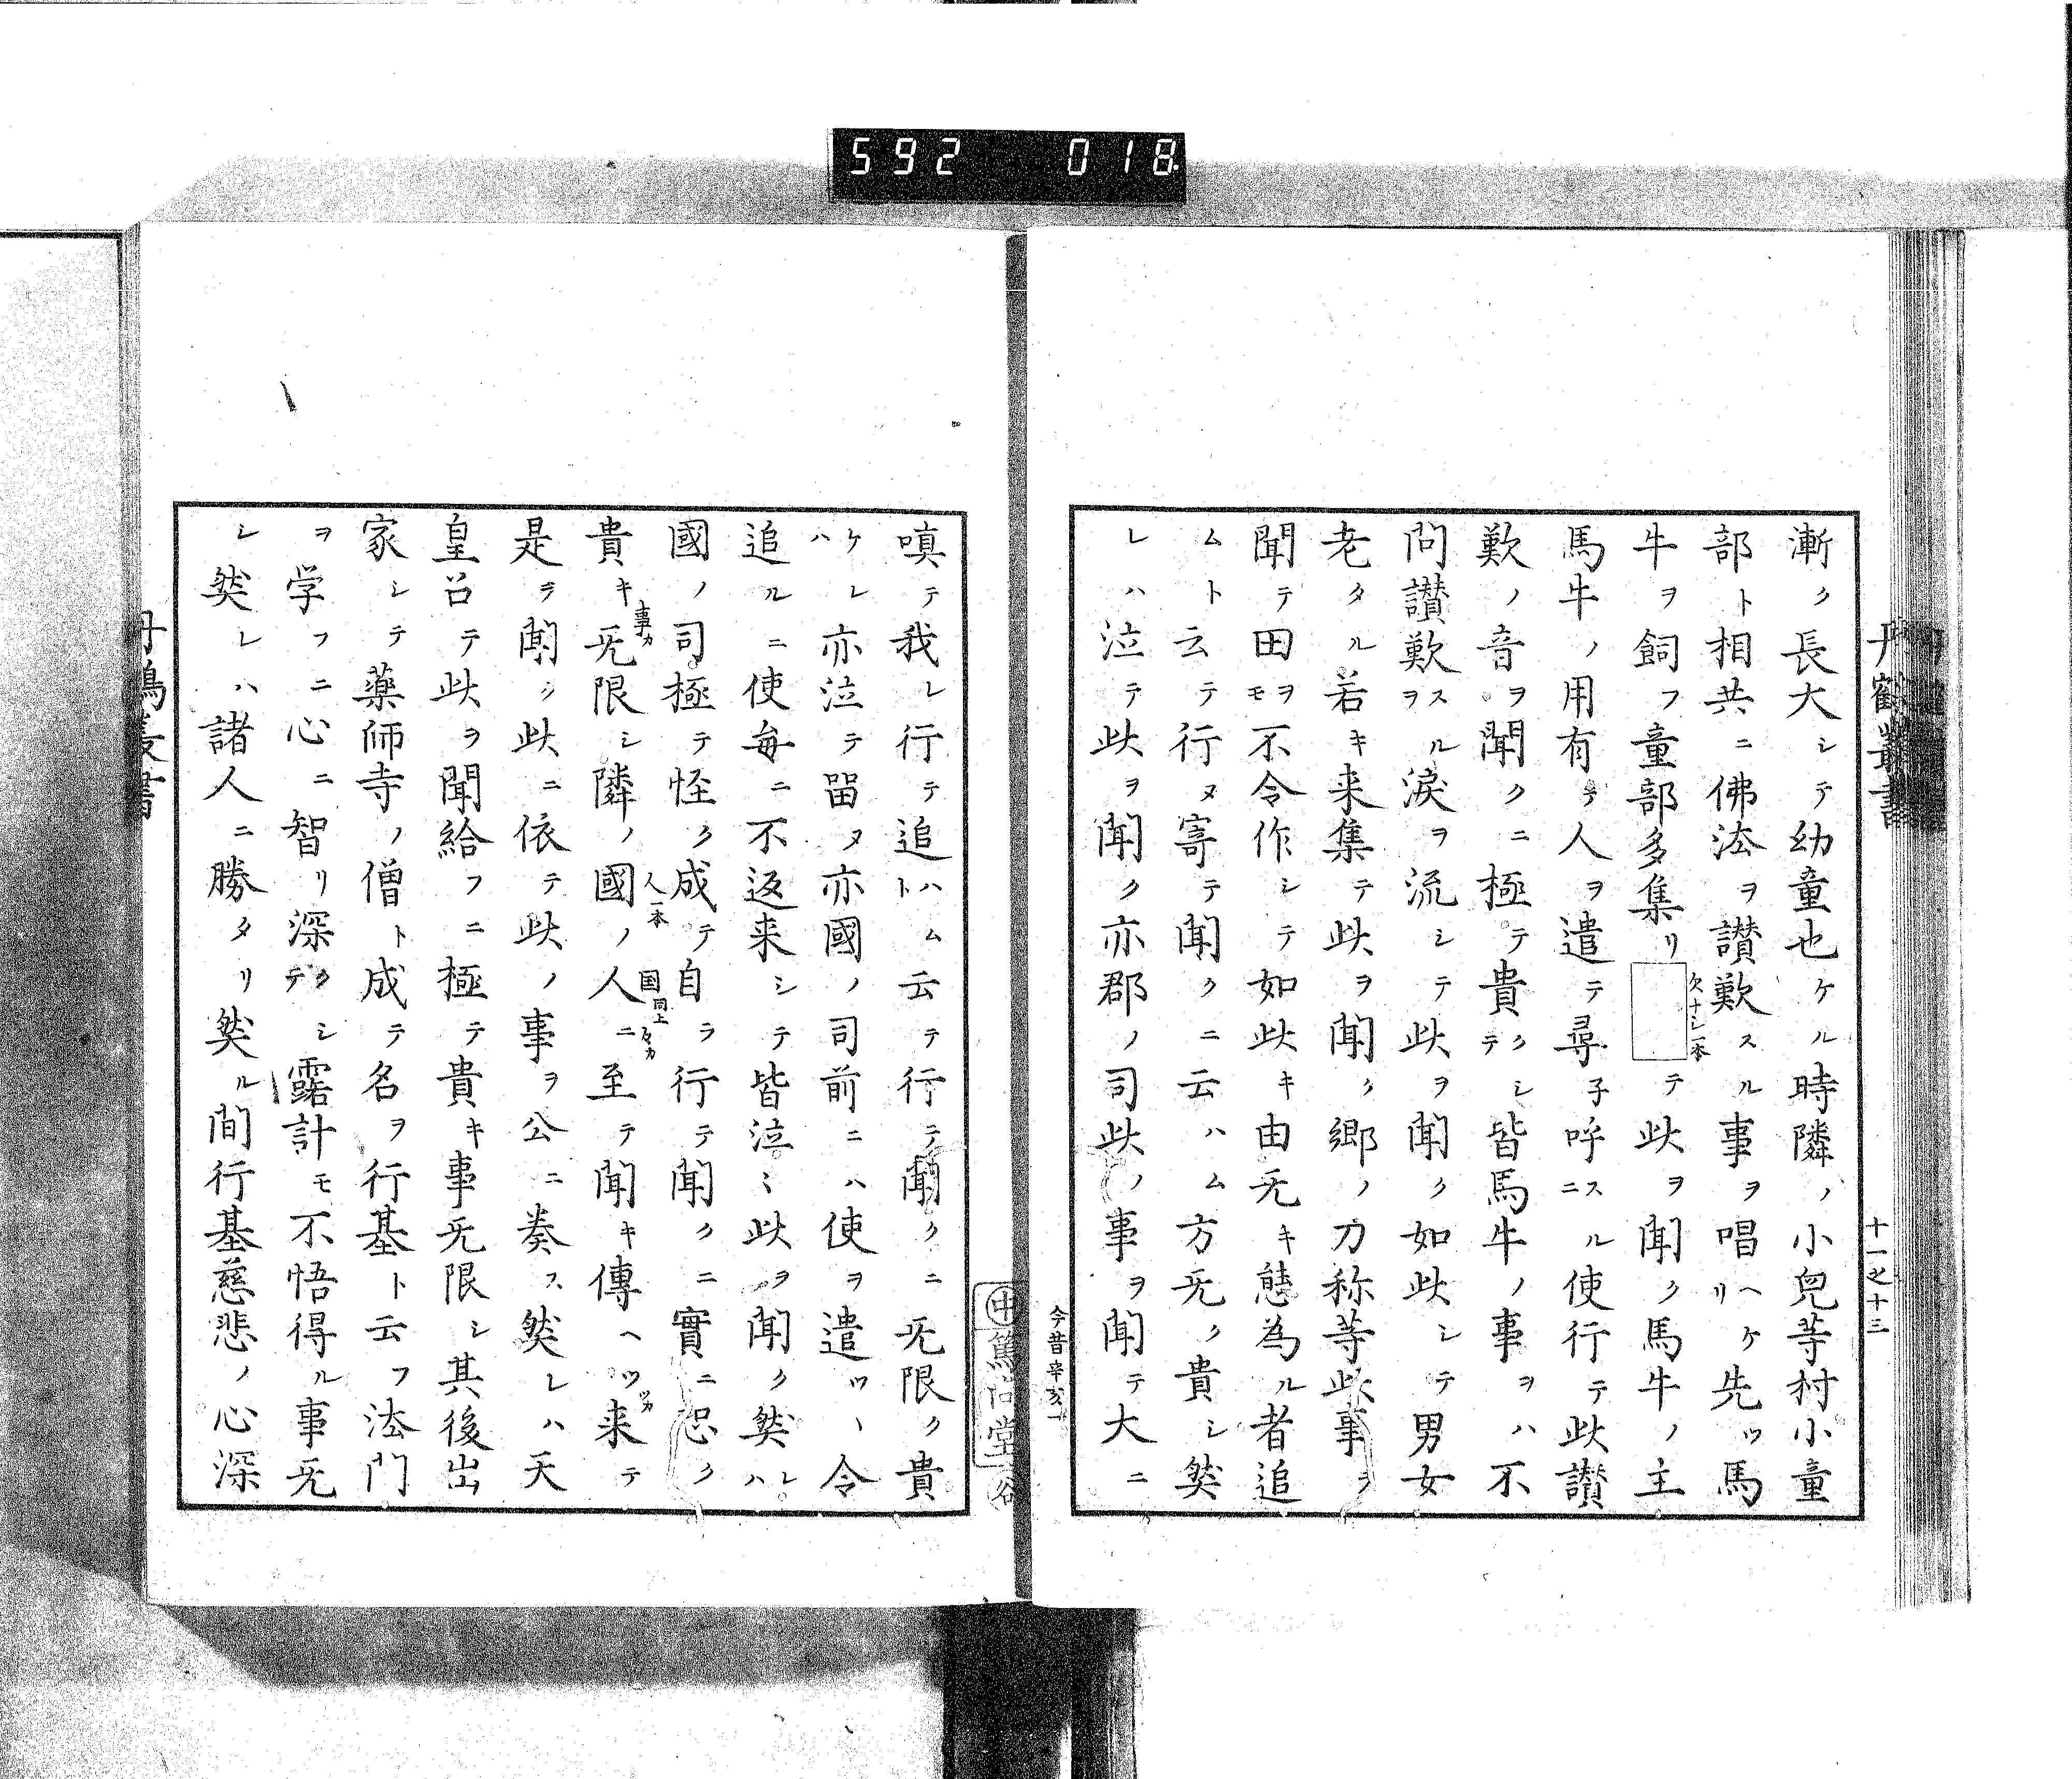 592 018
丹鶴叢書
十一之十三
漸ク長大シテ幼童也ケル時隣ノ小兒等村小童
部ト相共ニ佛法ヲ讃歎スル事ヲ唱ヘケリ先ツ馬
牛ヲ飼フ童部多集リ テ此ヲ聞ク馬牛ノ主
欠十シ一本
馬牛ノ用有テ人ヲ遣テ尋子呼スルニ使行テ此讃
歎ノ音ヲ聞クニ極テ貴クシテ皆馬牛ノ事ヲハ不
問讃歎スルヲ淚ヲ流シテ此ヲ聞ク如此シテ男女
老タル若キ来集テ此ヲ聞ク郷ノ刀称等此事ヲ
聞テ田ヲモ不令作シテ如此キ由无キ態為ル者追
ムト云テ行ヌ寄テ聞クニ云ハム方无ク貴シ㷼
レハ泣テ此ヲ聞ク亦郡ノ司此ノ事ヲ聞テ大ニ
今昔
嗔テ我レ行テ追ハムト云テ行テ聞クニ无限ク貴
ケレハ亦泣テ畄ヌ亦國ノ司前ニハ使ヲ遣ツヽ令
追ルニ使毎ニ不返来シテ皆泣〻此ヲ聞ク㷼レハ
國ノ司極テ恠ク成テ自ラ行テ聞クニ實ニ忍ク
貴キ无限シ隣ノ國ノ人ニ至テ聞キ傳ヘツ来テ
事カ
人一本
国同上
ツカ
是ヲ聞ク此ニ依テ此ノ事ヲ公ニ奏ス㷼レハ天
皇召テ此ヲ聞給フニ極テ貴キ事无限シ其後出
家シテ藥師寺ノ僧ト成テ名ヲ行基ト云フ法門
ヲ学フニ心ニ智リ深クシテ露計モ不悟得ル事无
シ㷼レハ諸人ニ勝タリ㷼ル間行基慈悲ノ心深